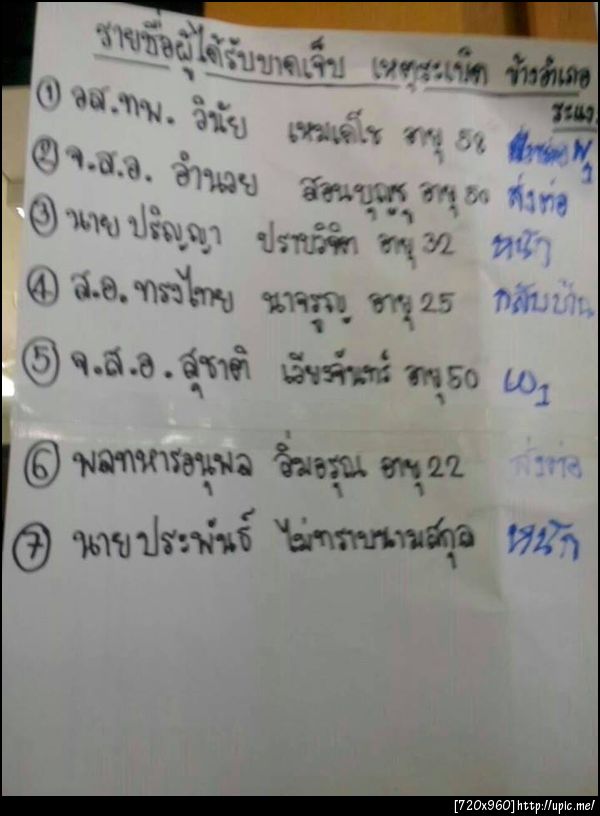 รายชื่อผู้ได้รับบาดเจ็บ เหตุระเบิด ข้างอำเภอ
ระแงะ
① อส.ทพ. วินัย เหมเดโช อายุ 52
② จ.ส.อ. อำนวย สอนบุญชู อายุ 50 ส่งต่อ
③ นาย ปริญญา ปราบวิจิต อายุ 32 หนัก
④ ส.อ. ทรงไทย นาจรูญ อายุ 25 กลับบ้าน
⑤ จ.ส.อ. สุชาติ เวียงจันทร์ อายุ 50 พ1
⑥ พลทหารอนุพล อิ่มอรุณ อายุ 22 ส่งต่อ
⑦ นายประพันธ์ ไม่ทราบนามสกุล หนัก
[720x960]http://upic.me/